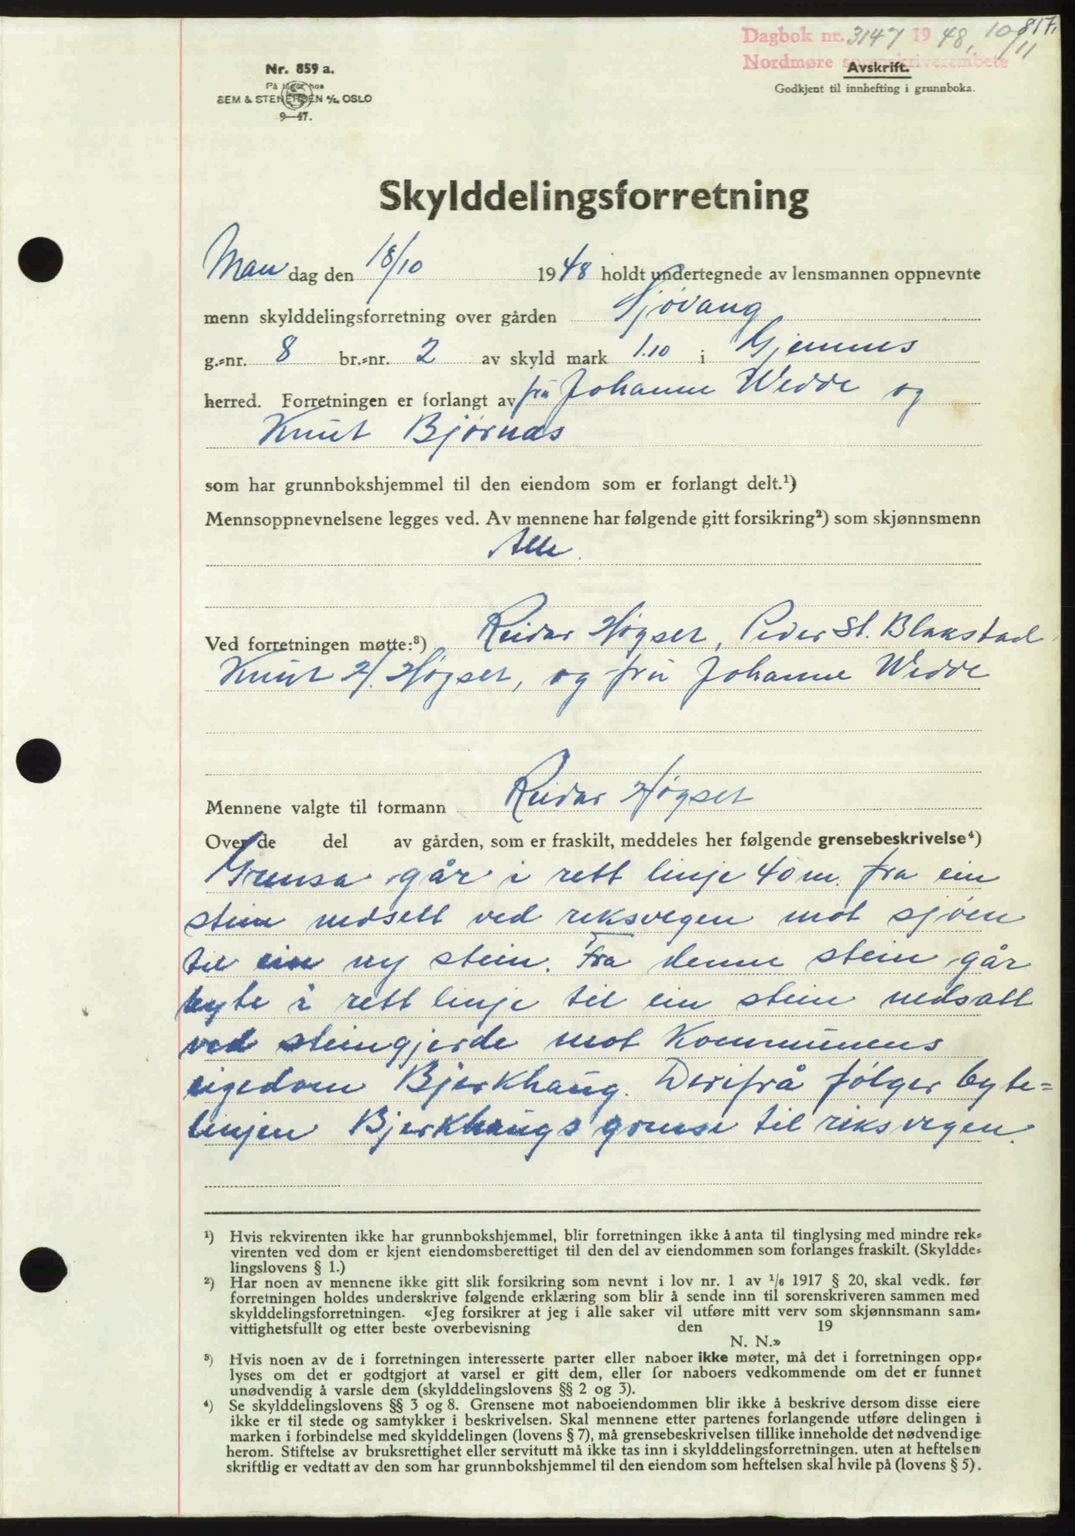 817.
Dagbok nr. 3147 1948, 10/11
Nordmøre sorenskriverembete
Nr. 859 a.
På lager hos
SEM & STENERSEN A/S, OSLO
9—47.
Avskrift.
Godkjent til innhefting i grunnboka.
Skylddelingsforretning
Man dag den 18/10 1948 holdt undertegnede av lensmannen oppnevnte
menn skylddelingsforretning over gården Sjøvang
g.-nr. 8 br.-nr. 2 av skyld mark 1.10 i Gjemnes
herred. Forretningen er forlangt av fru Johanne Wedde og
Knut Bjørnås
som har grunnbokshjemmel til den eiendom som er forlangt delt.¹)
Mennsoppnevnelsene legges ved. Av mennene har følgende gitt forsikring²) som skjønnsmenn
Alle.
Ved forretningen møtte:³) Reidar Høgset, Peder St. Blakstad
Knut H. Høgset, og fru Johanne Wedde
Mennene valgte til formann Reidar Høgset
Over de del av gården, som er fraskilt, meddeles her følgende grensebeskrivelse⁴)
Grensa går i rett linje 40 m. fra ein
stein nedsett ved reksvegen mot sjøen
til ein ny stein. Fra denne stein går
byte i rett linje til ein stein nedsatt
ved steingjerde mot Kommunens
eigedom Bjerkhaug. Derifrå følger byte-
linjen Bjerkhaugs grense til riksvegen.
¹) Hvis rekvirenten ikke har grunnbokshjemmel, blir forretningen ikke å anta til tinglysing med mindre rek-
virenten ved dom er kjent eiendomsberettiget til den del av eiendommen som forlanges fraskilt. (Skyldde-
lingslovens § 1.)
²) Har noen av mennene ikke gitt slik forsikring som nevnt i lov nr. 1 av 1/6 1917 § 20, skal vedk. før
forretningen holdes underskrive følgende erklæring som blir å sende inn til sorenskriveren sammen med
skylddelingsforretningen. «Jeg forsikrer at jeg i alle saker vil utføre mitt verv som skjønnsmann sam-
vittighetsfullt og etter beste overbevisning den 19
N. N.»
³) Hvis noen av de i forretningen interesserte parter eller naboer ikke møter, må det i forretningen opp-
lyses om det er godtgjort at varsel er gitt dem, eller for naboers vedkommende om det er funnet
unødvendig å varsle dem (skylddelingslovens §§ 2 og 3).
⁴) Se skylddelingslovens §§ 3 og 8. Grensene mot naboeiendommen blir ikke å beskrive dersom disse eiere
ikke er til stede og samtykker i beskrivelsen. Skal mennene etter partenes forlangende utføre delingen i
marken i forbindelse med skylddelingen (lovens § 7), må grensebeskrivelsen tillike inneholde det nødvendige
herom. Stiftelse av bruksrettighet eller servitutt må ikke tas inn i skylddelingsforretningen. uten at heftelsen
skriftlig er vedtatt av den som har grunnbokshjemmel til den eiendom som heftelsen skal hvile på (lovens § 5).